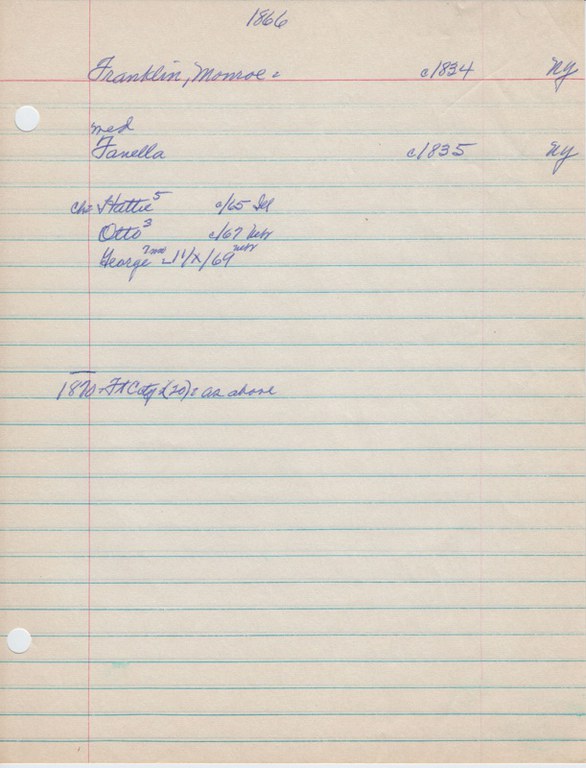 1866
Franklin, Monroe = c1834 NY
med
Fanella c1835 NY
ch= Hattie 5 c/65 Ill
Otto 3 c/67 Nebr
George 7mo - 11/X/69 nebr
1870 - Ft (20): as above